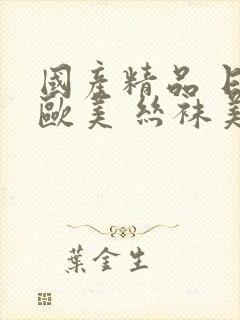 國產精品
歐美 絲袜
葉金生